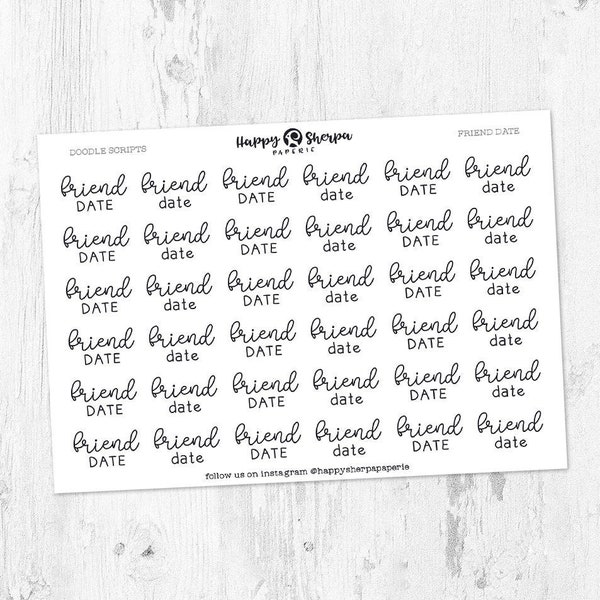 DOODLE SCRIPTS
Happy Sherpa
PAPERIE
FRIEND DATE
friend friend friend friend friend friend
DATE date DATE date DATE date
friend friend friend friend friend friend
DATE date DATE date DATE date
friend friend friend friend friend friend
DATE date DATE date DATE date
friend friend friend friend friend friend
DATE date DATE date DATE date
friend friend friend friend friend friend
DATE date DATE date DATE date
friend friend friend friend friend friend
DATE date DATE date DATE date
follow us on instagram @happysherpapaperie